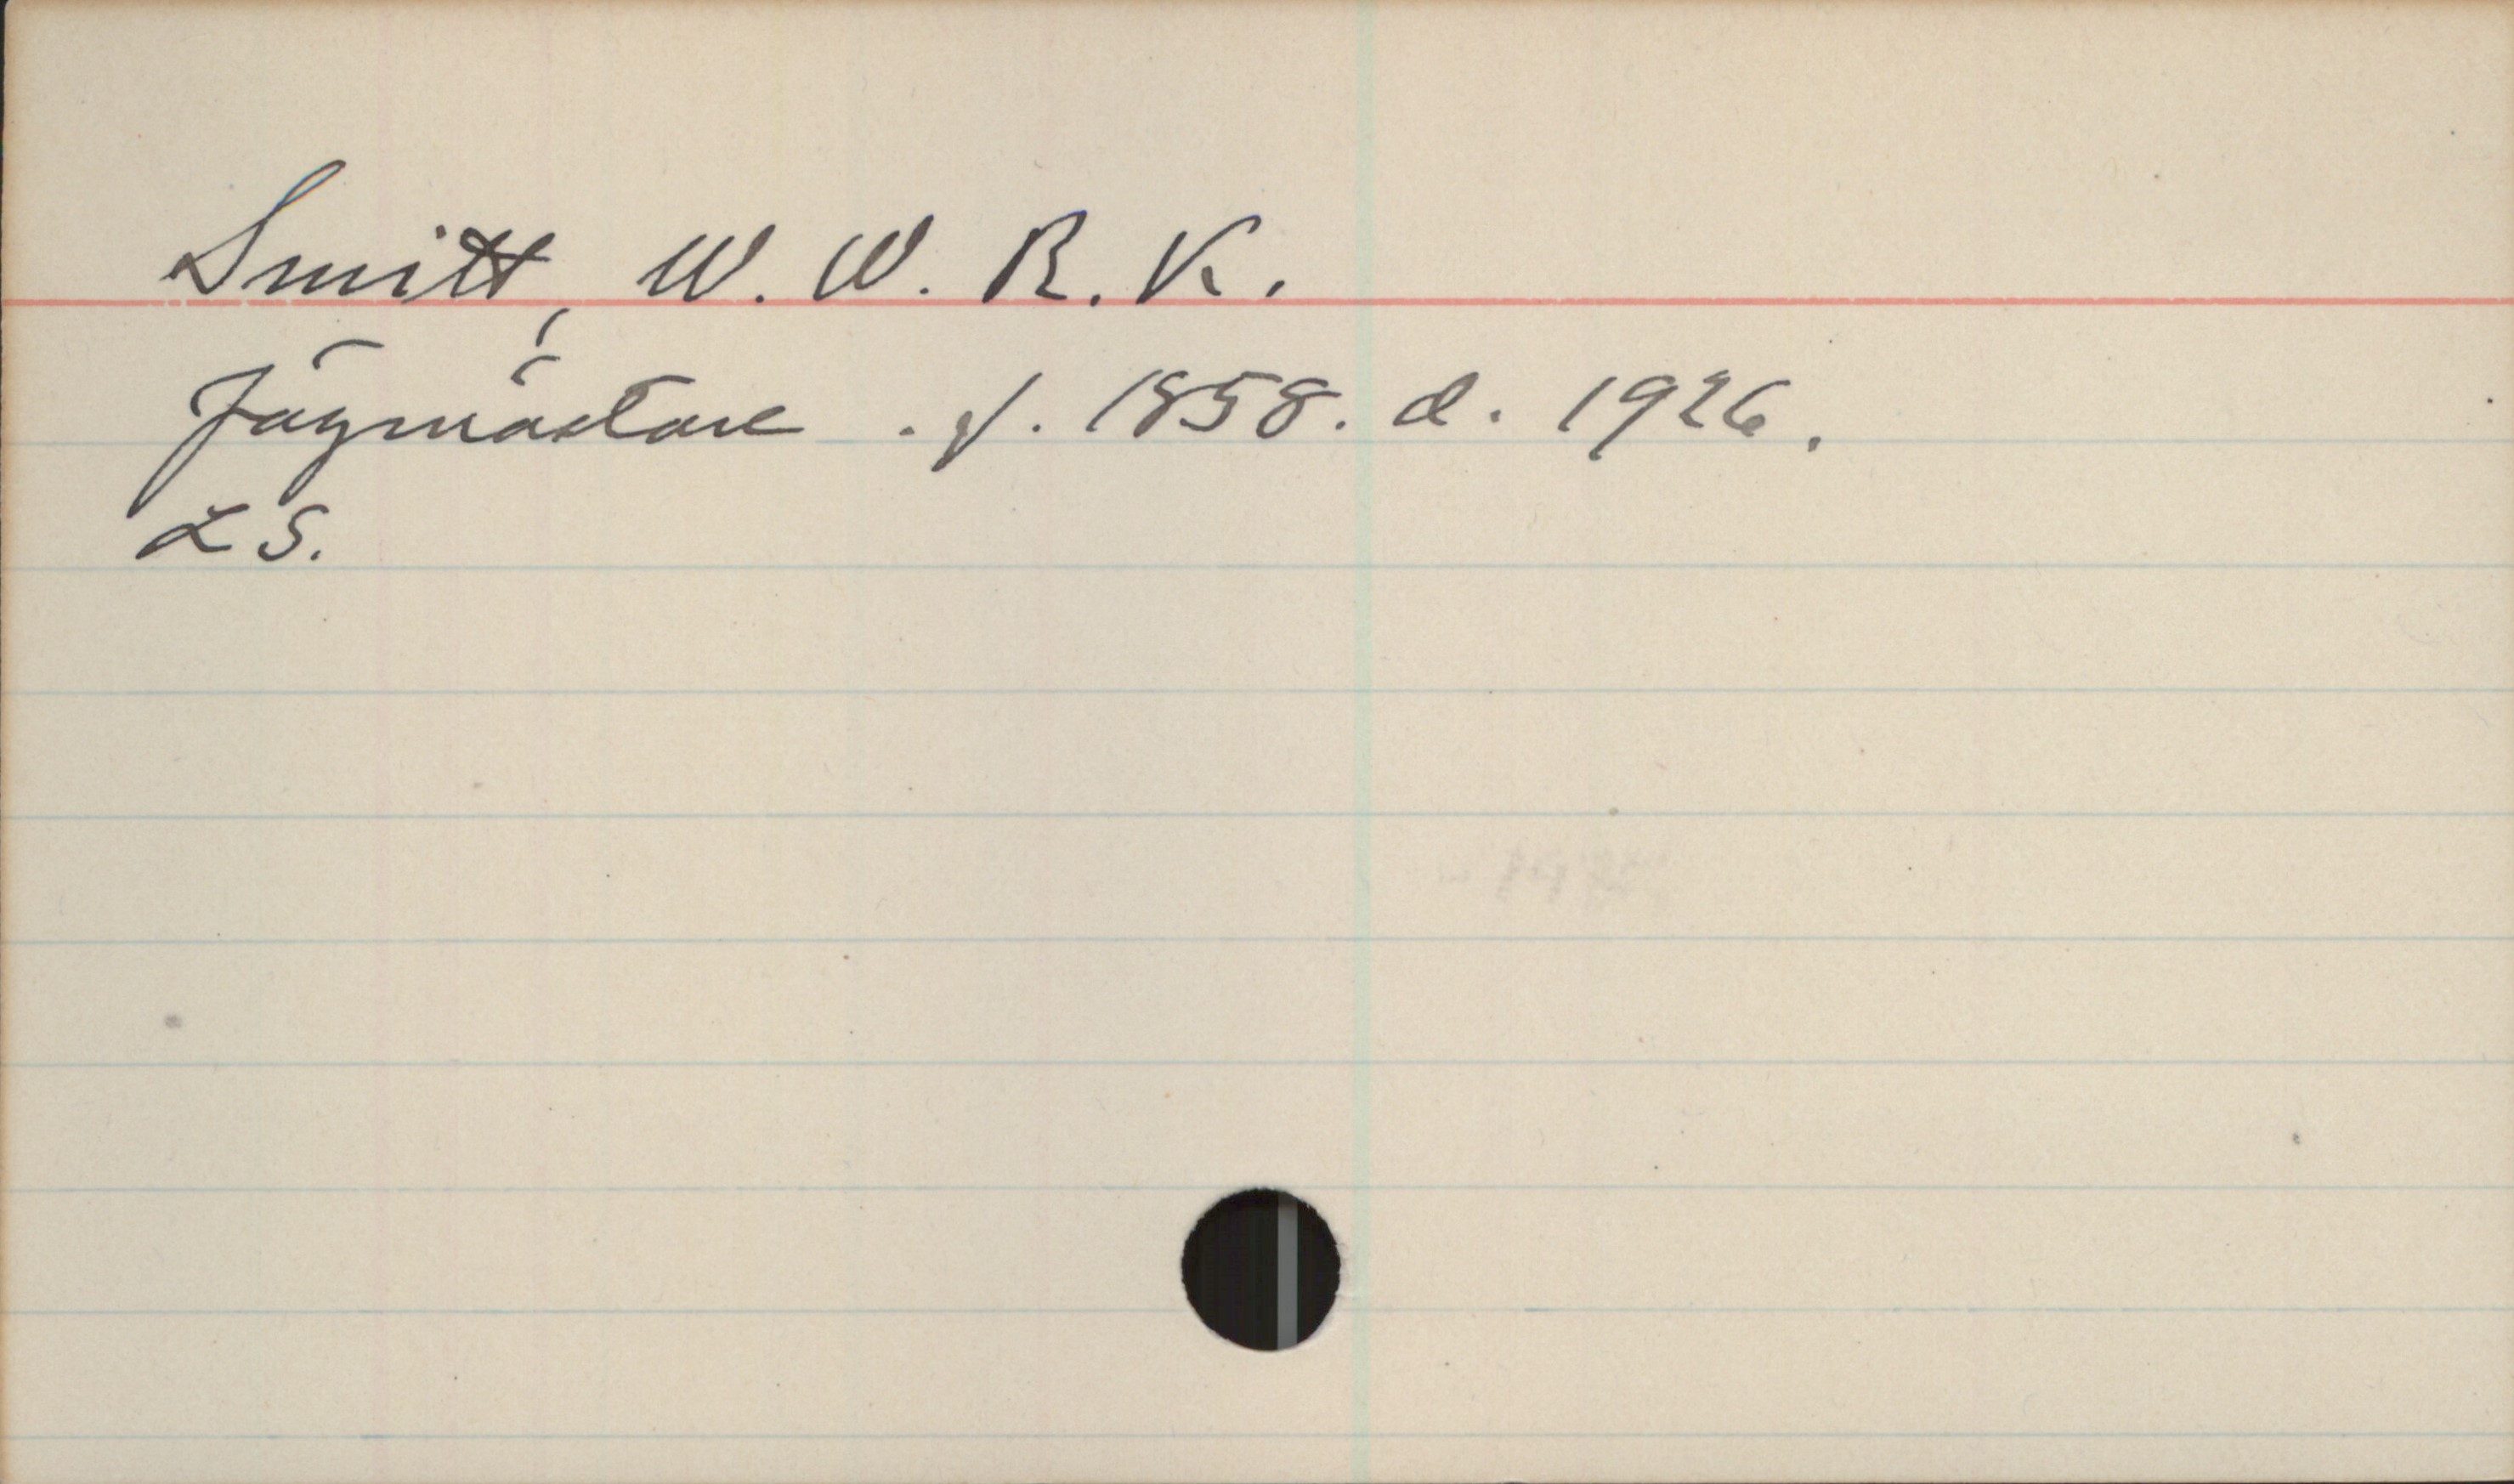 Smitt, W. W. R. K.
Jägmästare . f. 1858. d. 1926.
LS.